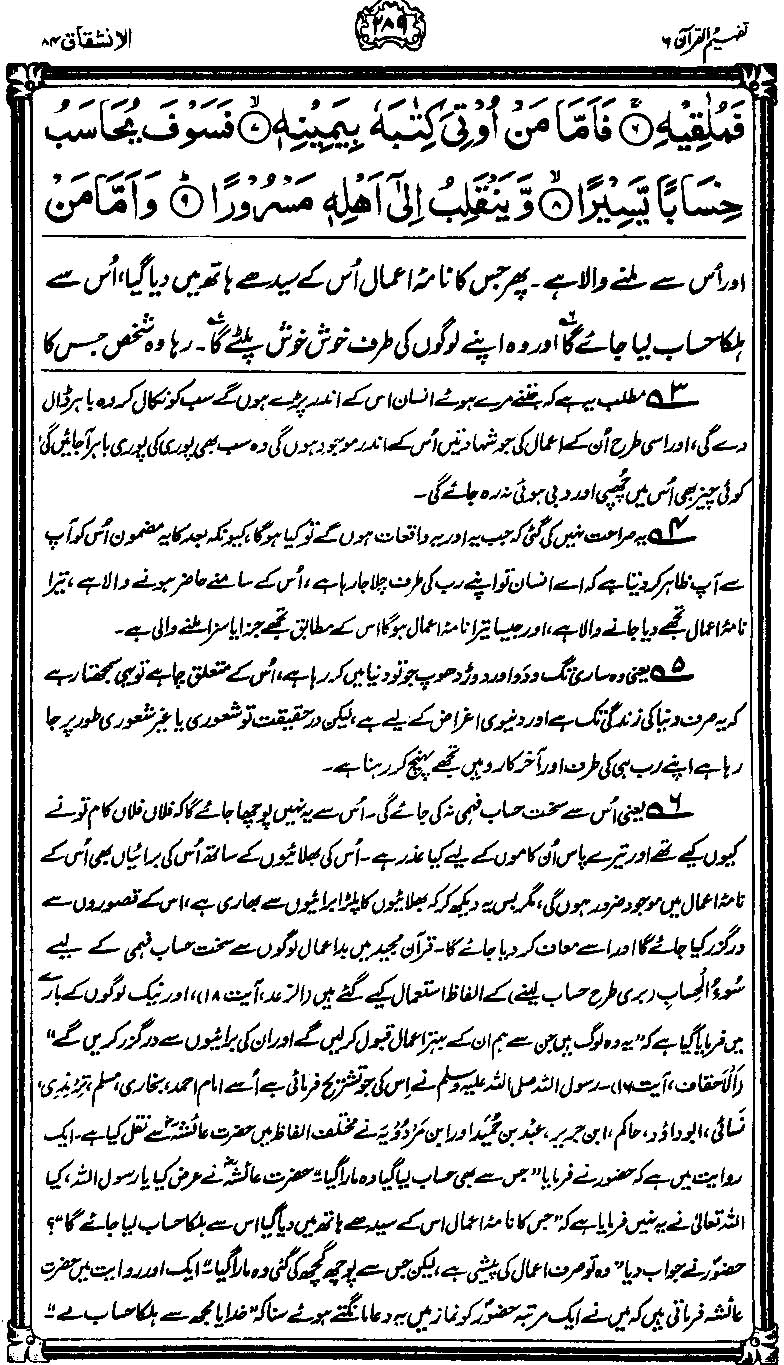 تفہیم القرآن ۶
۲۸۹
الانشقاق ۸۴
فَمُلٰقِیْهِ ﴿۶﴾ فَاَمَّا مَنْ اُوْتِیَ كِتٰبَهٗ بِیَمِیْنِهٖ ﴿۷﴾ فَسَوْفَ یُحَاسَبُ
حِسَابًا یَّسِیْرًا ﴿۸﴾ وَّیَنْقَلِبُ اِلٰۤی اَهْلِهٖ مَسْرُوْرًا ﴿۹﴾ وَاَمَّا مَنْ
اور اُس سے ملنے والا ہے۔ پھر جس کا نامۂ اعمال اُس کے سیدھے ہاتھ میں دیا گیا، اُس سے
ہلکا حساب لیا جائے گا۶ اور وہ اپنے لوگوں کی طرف خوش خوش پلٹے گا۷۔ رہا وہ شخص جس کا
۳ مطلب یہ ہے کہ جتنے مرے ہوئے انسان اس کے اندر پڑے ہوں گے سب کو نکال کر وہ باہر ڈال
دے گی، اور اسی طرح اُن کے اعمال کی جو شہادتیں اُس کے اندر موجود ہوں گی وہ سب بھی پوری کی پوری باہر آجائیں گی،
کوئی چیز بھی اُس میں چھپی اور دبی ہوئی نہ رہ جائے گی۔
۴ یہ صراحت نہیں کی گئی کہ جب یہ اور یہ واقعات ہوں گے تو کیا ہوگا، کیونکہ بعد کا یہ مضمون اُس کو آپ
سے آپ ظاہر کر دیتا ہے کہ اے انسان تو اپنے رب کی طرف چلا جا رہا ہے، اُس کے سامنے حاضر ہونے والا ہے، تیرا
نامۂ اعمال تجھے دیا جانے والا ہے، اور جیسا تیرا نامۂ اعمال ہوگا اس کے مطابق تجھے جزا یا سزا ملنے والی ہے۔
۵ یعنی وہ ساری تگ و دَو اور دوڑ دھوپ جو تُو دنیا میں کر رہا ہے، اُس کے متعلق چاہے تو یہی سمجھتا رہے
کہ یہ صرف دنیا کی زندگی تک ہے اور دنیوی اغراض کے لیے ہے، لیکن درحقیقت تو شعوری یا غیر شعوری طور پر جا
رہا ہے اپنے رب ہی کی طرف اور آخرکار وہیں تجھے پہنچ کر رہنا ہے۔
۶ یعنی اُس سے سخت حساب فہمی نہ کی جائے گی۔ اُس سے یہ نہیں پوچھا جائے گا کہ فلاں فلاں کام تو نے
کیوں کیے تھے اور تیرے پاس اُن کاموں کے لیے کیا عذر ہے۔ اُس کی بھلائیوں کے ساتھ اُس کی برائیاں بھی اُس کے
نامۂ اعمال میں موجود ضرور ہوں گی، مگر بس یہ دیکھ کر کہ بھلائیوں کا پلڑا برائیوں سے بھاری ہے، اس کے قصوروں سے
درگزر کیا جائے گا اور اسے معاف کر دیا جائے گا۔ قرآن مجید میں بداعمال لوگوں سے سخت حساب فہمی کے لیے
سُوْءُ الْحِساب (بری طرح حساب لینے) کے الفاظ استعمال کیے گئے ہیں (الرعد، آیت ۱۸)، اور نیک لوگوں کے بارے
میں فرمایا گیا ہے کہ "یہ وہ لوگ ہیں جن سے ہم ان کے بہتر اعمال قبول کرلیں گے اور ان کی برائیوں سے درگزر کریں گے"
(الاحقاف، آیت ۱۶)۔ رسول اللہ صلی اللہ علیہ وسلم نے اِس کی جو تشریح فرمائی ہے اُسے امام احمد، بخاری، مسلم، ترمذی،
نسائی، ابوداؤد، حاکم، ابن جریر، عبد بن حُمَید اور ابن مَرْدُوْیَہ نے مختلف الفاظ میں حضرت عائشہؓ سے نقل کیا ہے۔ ایک
روایت میں ہے کہ حضورؐ نے فرمایا "جس سے بھی حساب لیا گیا وہ مارا گیا"۔ حضرت عائشہؓ نے عرض کیا یا رسول اللہ، کیا
اللہ تعالیٰ نے یہ نہیں فرمایا ہے کہ "جس کا نامۂ اعمال اس کے سیدھے ہاتھ میں دیا گیا اس سے ہلکا حساب لیا جائے گا"؟
حضورؐ نے جواب دیا "وہ تو صرف اعمال کی پیشی ہے، لیکن جس سے پوچھ گچھ کی گئی وہ مارا گیا"۔ ایک اور روایت میں حضرت
عائشہ فرماتی ہیں کہ میں نے ایک مرتبہ حضورؐ کو نماز میں یہ دعا مانگتے ہوئے سنا کہ "خدایا مجھ سے ہلکا حساب لے"۔